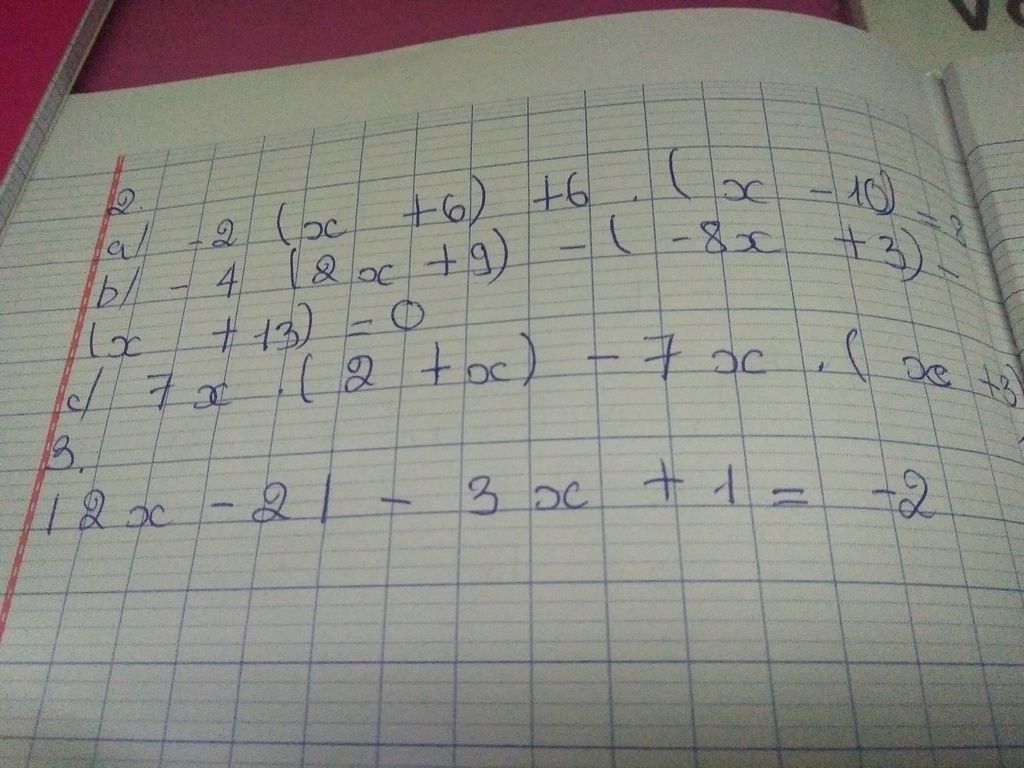 2.
a/ -2 (x +6) +6 . ( x -10) =
b/ - 4 (2x +9) - ( -8x +3) -
(x +13) = 0
c/ 7x . ( 2 +x) - 7x . ( x +3)
3.
|2x -2| - 3x +1 = -2